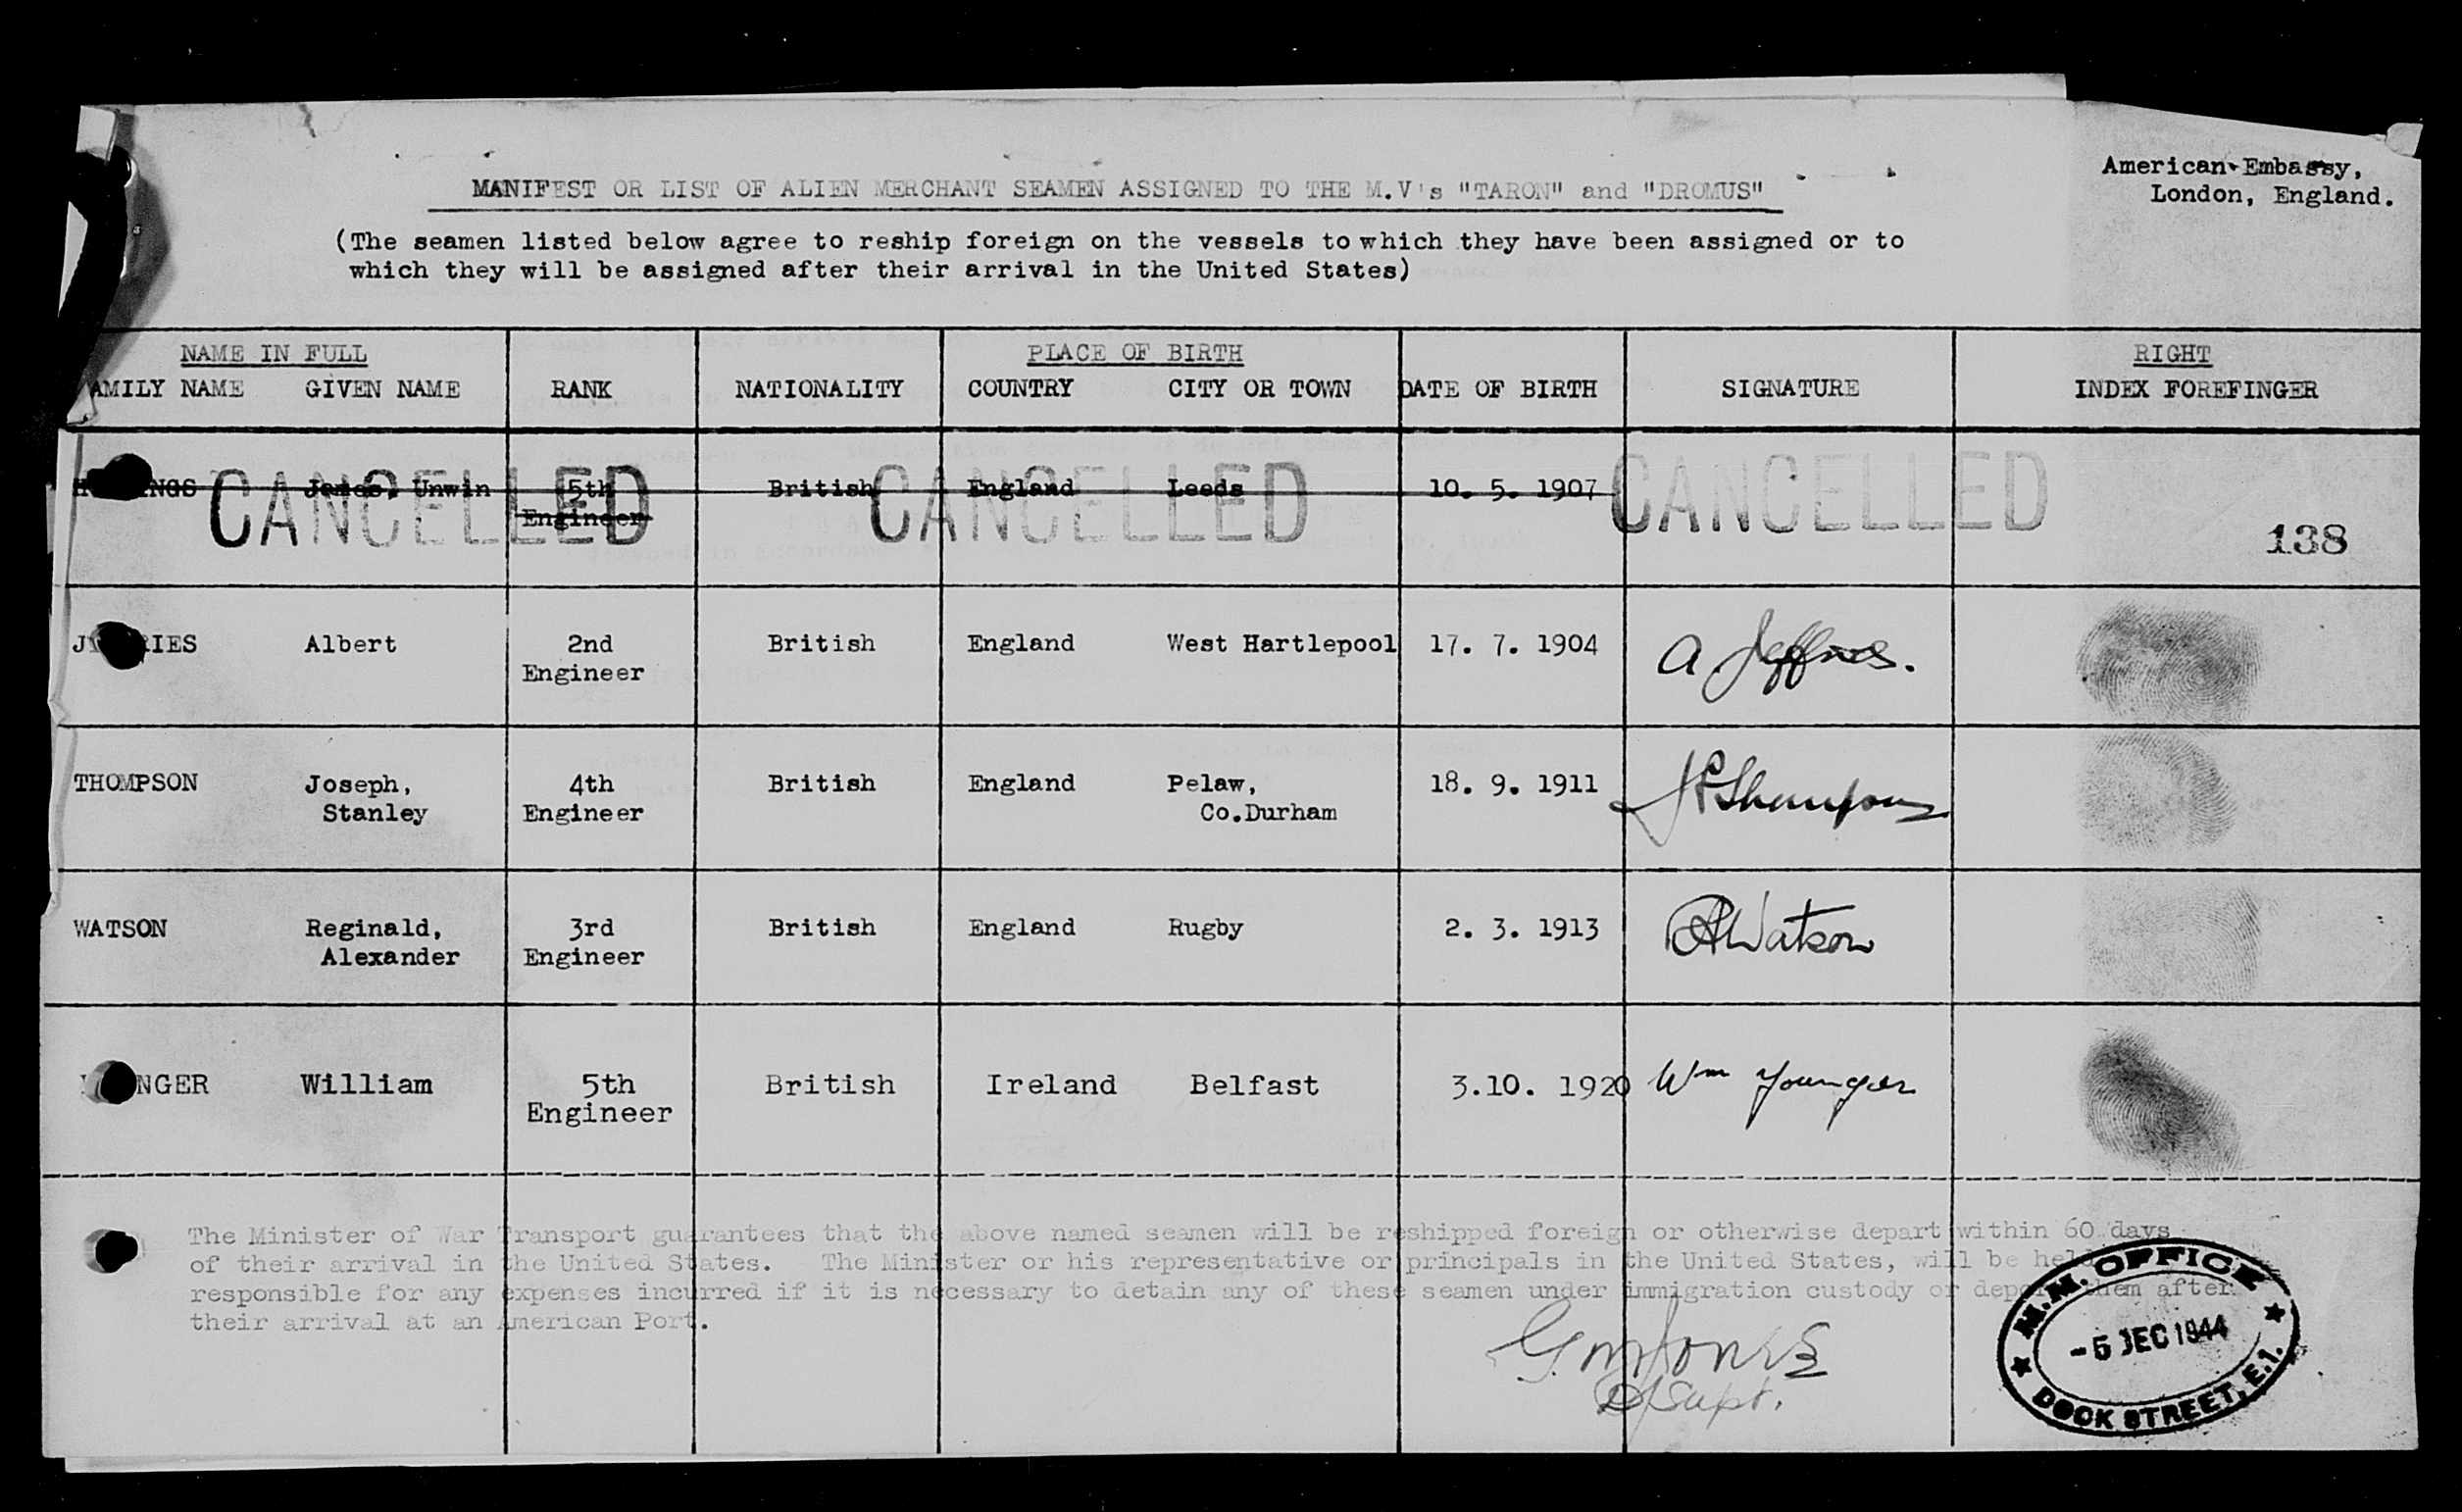 American Embassy,
London, England.
MANIFEST OR LIST OF ALIEN MERCHANT SEAMEN ASSIGNED TO THE M.V's "TARON" and "DROMUS"
(The seamen listed below agree to reship foreign on the vessels to which they have been assigned or to
which they will be assigned after their arrival in the United States)
NAME IN FULL PLACE OF BIRTH RIGHT
FAMILY NAME GIVEN NAME RANK NATIONALITY COUNTRY CITY OR TOWN DATE OF BIRTH SIGNATURE INDEX FOREFINGER
James, Unwin 5th British England Leeds 10. 5. 1907
Engineer
CANCELLED CANCELLED CANCELLED
138
Albert 2nd British England West Hartlepool 17. 7. 1904 A Jeffries.
Engineer
THOMPSON Joseph, 4th British England Pelaw, 18. 9. 1911 JSThompson
Stanley Engineer Co.Durham
WATSON Reginald, 3rd British England Rugby 2. 3. 1913 RAWatson
Alexander Engineer
William 5th British Ireland Belfast 3.10. 1920 Wm Younger
Engineer
The Minister of War Transport guarantees that the above named seamen will be reshipped foreign or otherwise depart within 60 days
of their arrival in the United States. The Minister or his representative or principals in the United States, will be held
responsible for any expenses incurred if it is necessary to detain any of these seamen under immigration custody or deport them after
their arrival at an American Port.
G M Jones
D/Supt.
M.M. OFFICE
-5 DEC 1944
DOCK STREET, E.1.